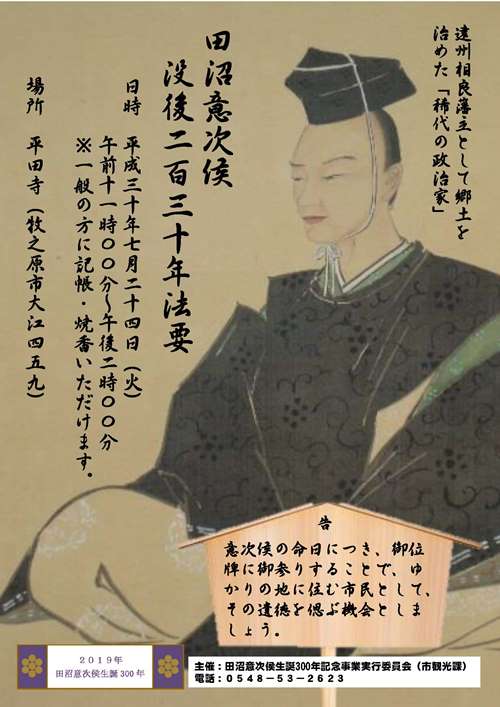 遠州相良藩主として郷土を
治めた「稀代の政治家」
田沼意次侯
没後二百三十年法要
日時　平成三十年七月二十四日（火）
午前十一時〇〇分～午後二時〇〇分
※一般の方に記帳・焼香いただけます。
場所　平田寺（牧之原市大江四五九）
告
意次侯の命日につき、御位
牌に御参りすることで、ゆ
かりの地に住む市民として、
その遺徳を偲ぶ機会としま
しょう。
2019年
田沼意次侯生誕300年
主催：田沼意次侯生誕300年記念事業実行委員会（市観光課）
電話：０５４８－５３－２６２３